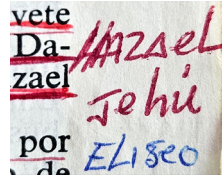 vete
Da-
zael
por
de
HAZAEL
Jehú
ELISEO